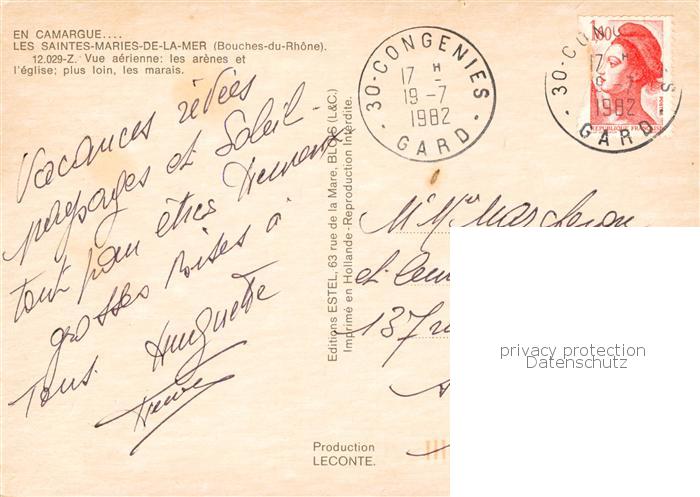 EN CAMARGUE....
LES SAINTES-MARIES-DE-LA-MER (Bouches-du-Rhône).
12.029-Z. Vue aérienne: les arènes et
l'église; plus loin, les marais.
Vacances rêvées
paysages et Soleil
tout pour être heureux
grosses bises à
Tous. Huguette
Editions ESTEL, 63 rue de la Mare, BLOIS (L&C.)
Imprimé en Hollande - Reproduction Interdite.
30-CONGENIES
17 H
19-7
1982
GARD
1,80
30-CON S
17 H
1982
GARD
POSTES
REPUBLIQUE FRANÇAISE
M. Mme
et
137
privacy protection
Datenschutz
Production
LECONTE.